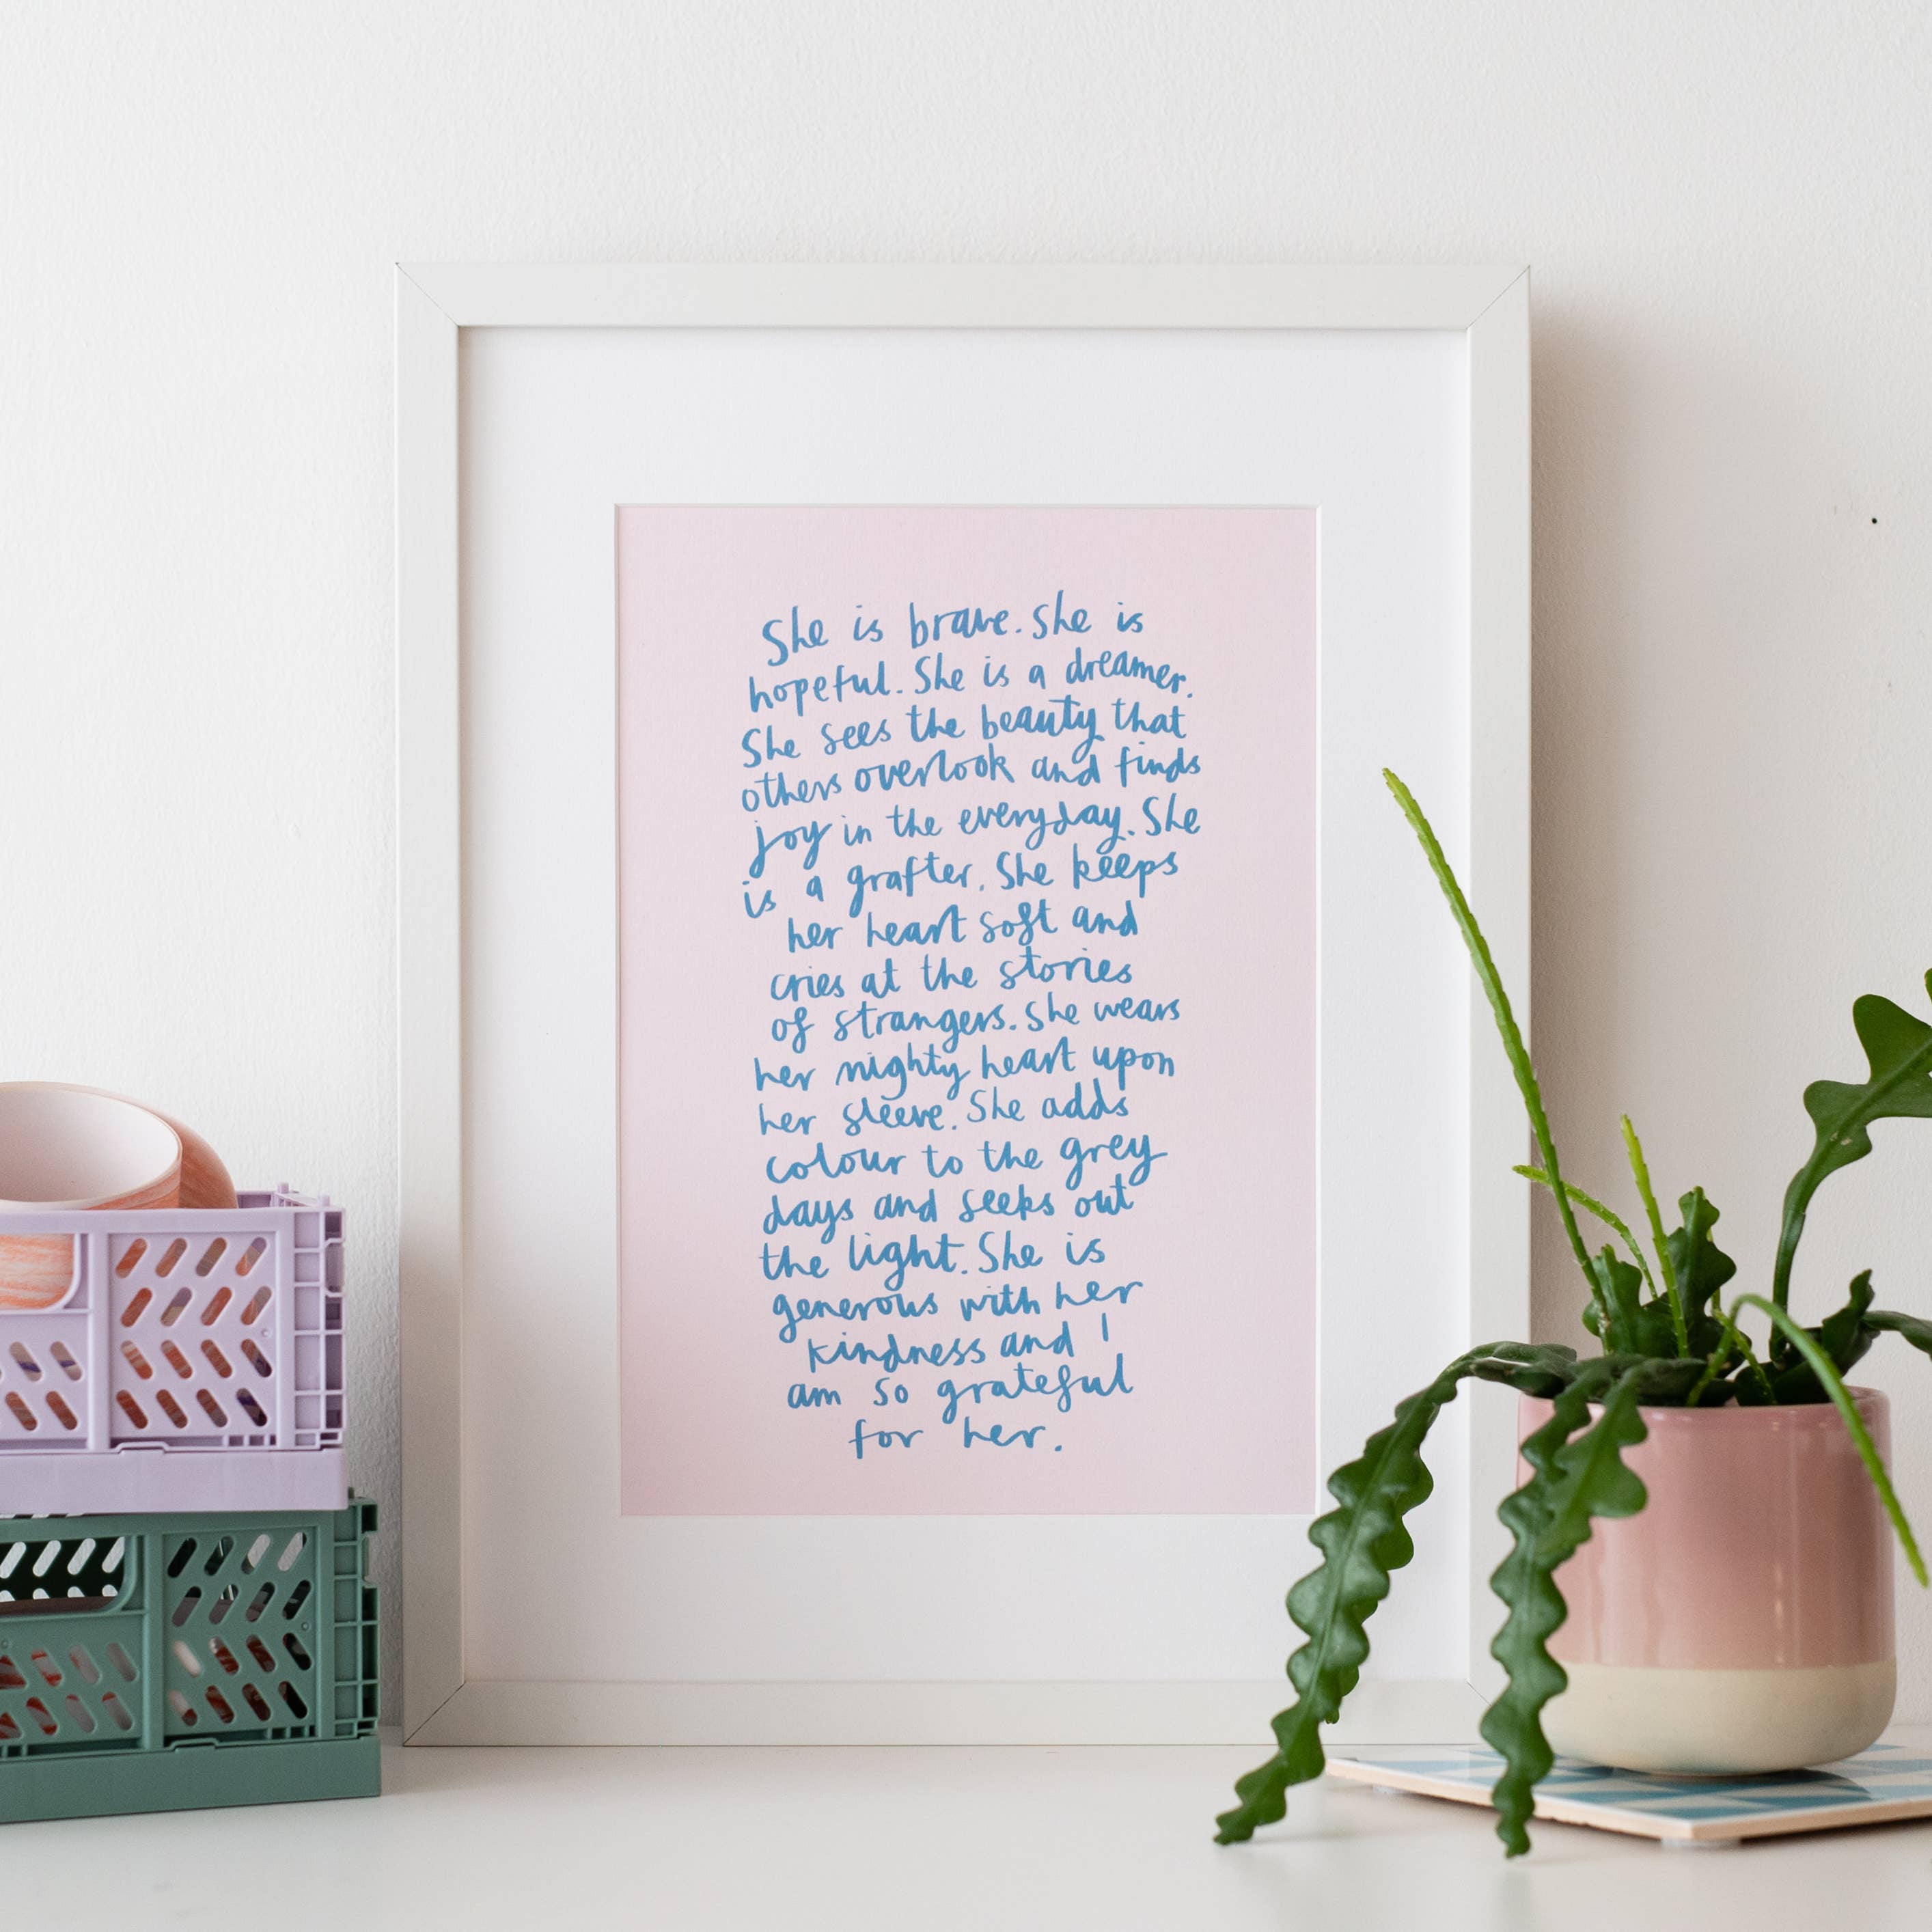 She is brave. She is
hopeful. She is a dreamer.
She sees the beauty that
others overlook and finds
joy in the everyday. She
is a grafter. She keeps
her heart soft and
cries at the stories
of strangers. She wears
her mighty heart upon
her sleeve. She adds
colour to the grey
days and seeks out
the light. She is
generous with her
kindness and I
am so grateful
for her.